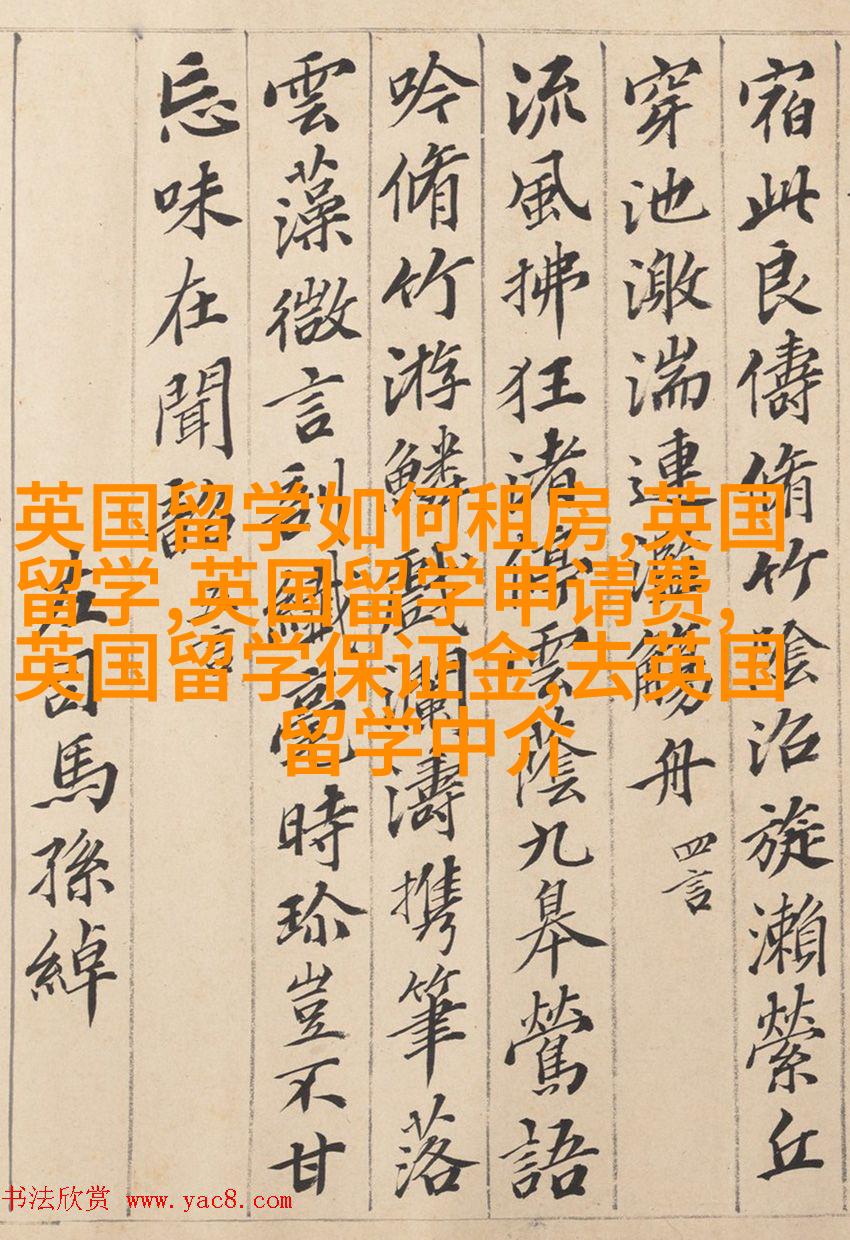 宿此良儔脩竹陰沼旋瀨縈丘
穿池激湍連濫觴舟 四言
流風拂狂渚停雲蔭九皋鶯語
吟脩竹游鱗戲瀾濤携筆落
雲藻微言剖纖毫時珍豈不甘
忘味在聞韶 五言
左司馬孫綽
英国留学如何租房,英国
留学,英国留学申请费,
英国留学保证金,去英国
留学中介
书法欣赏 www.yac8.com